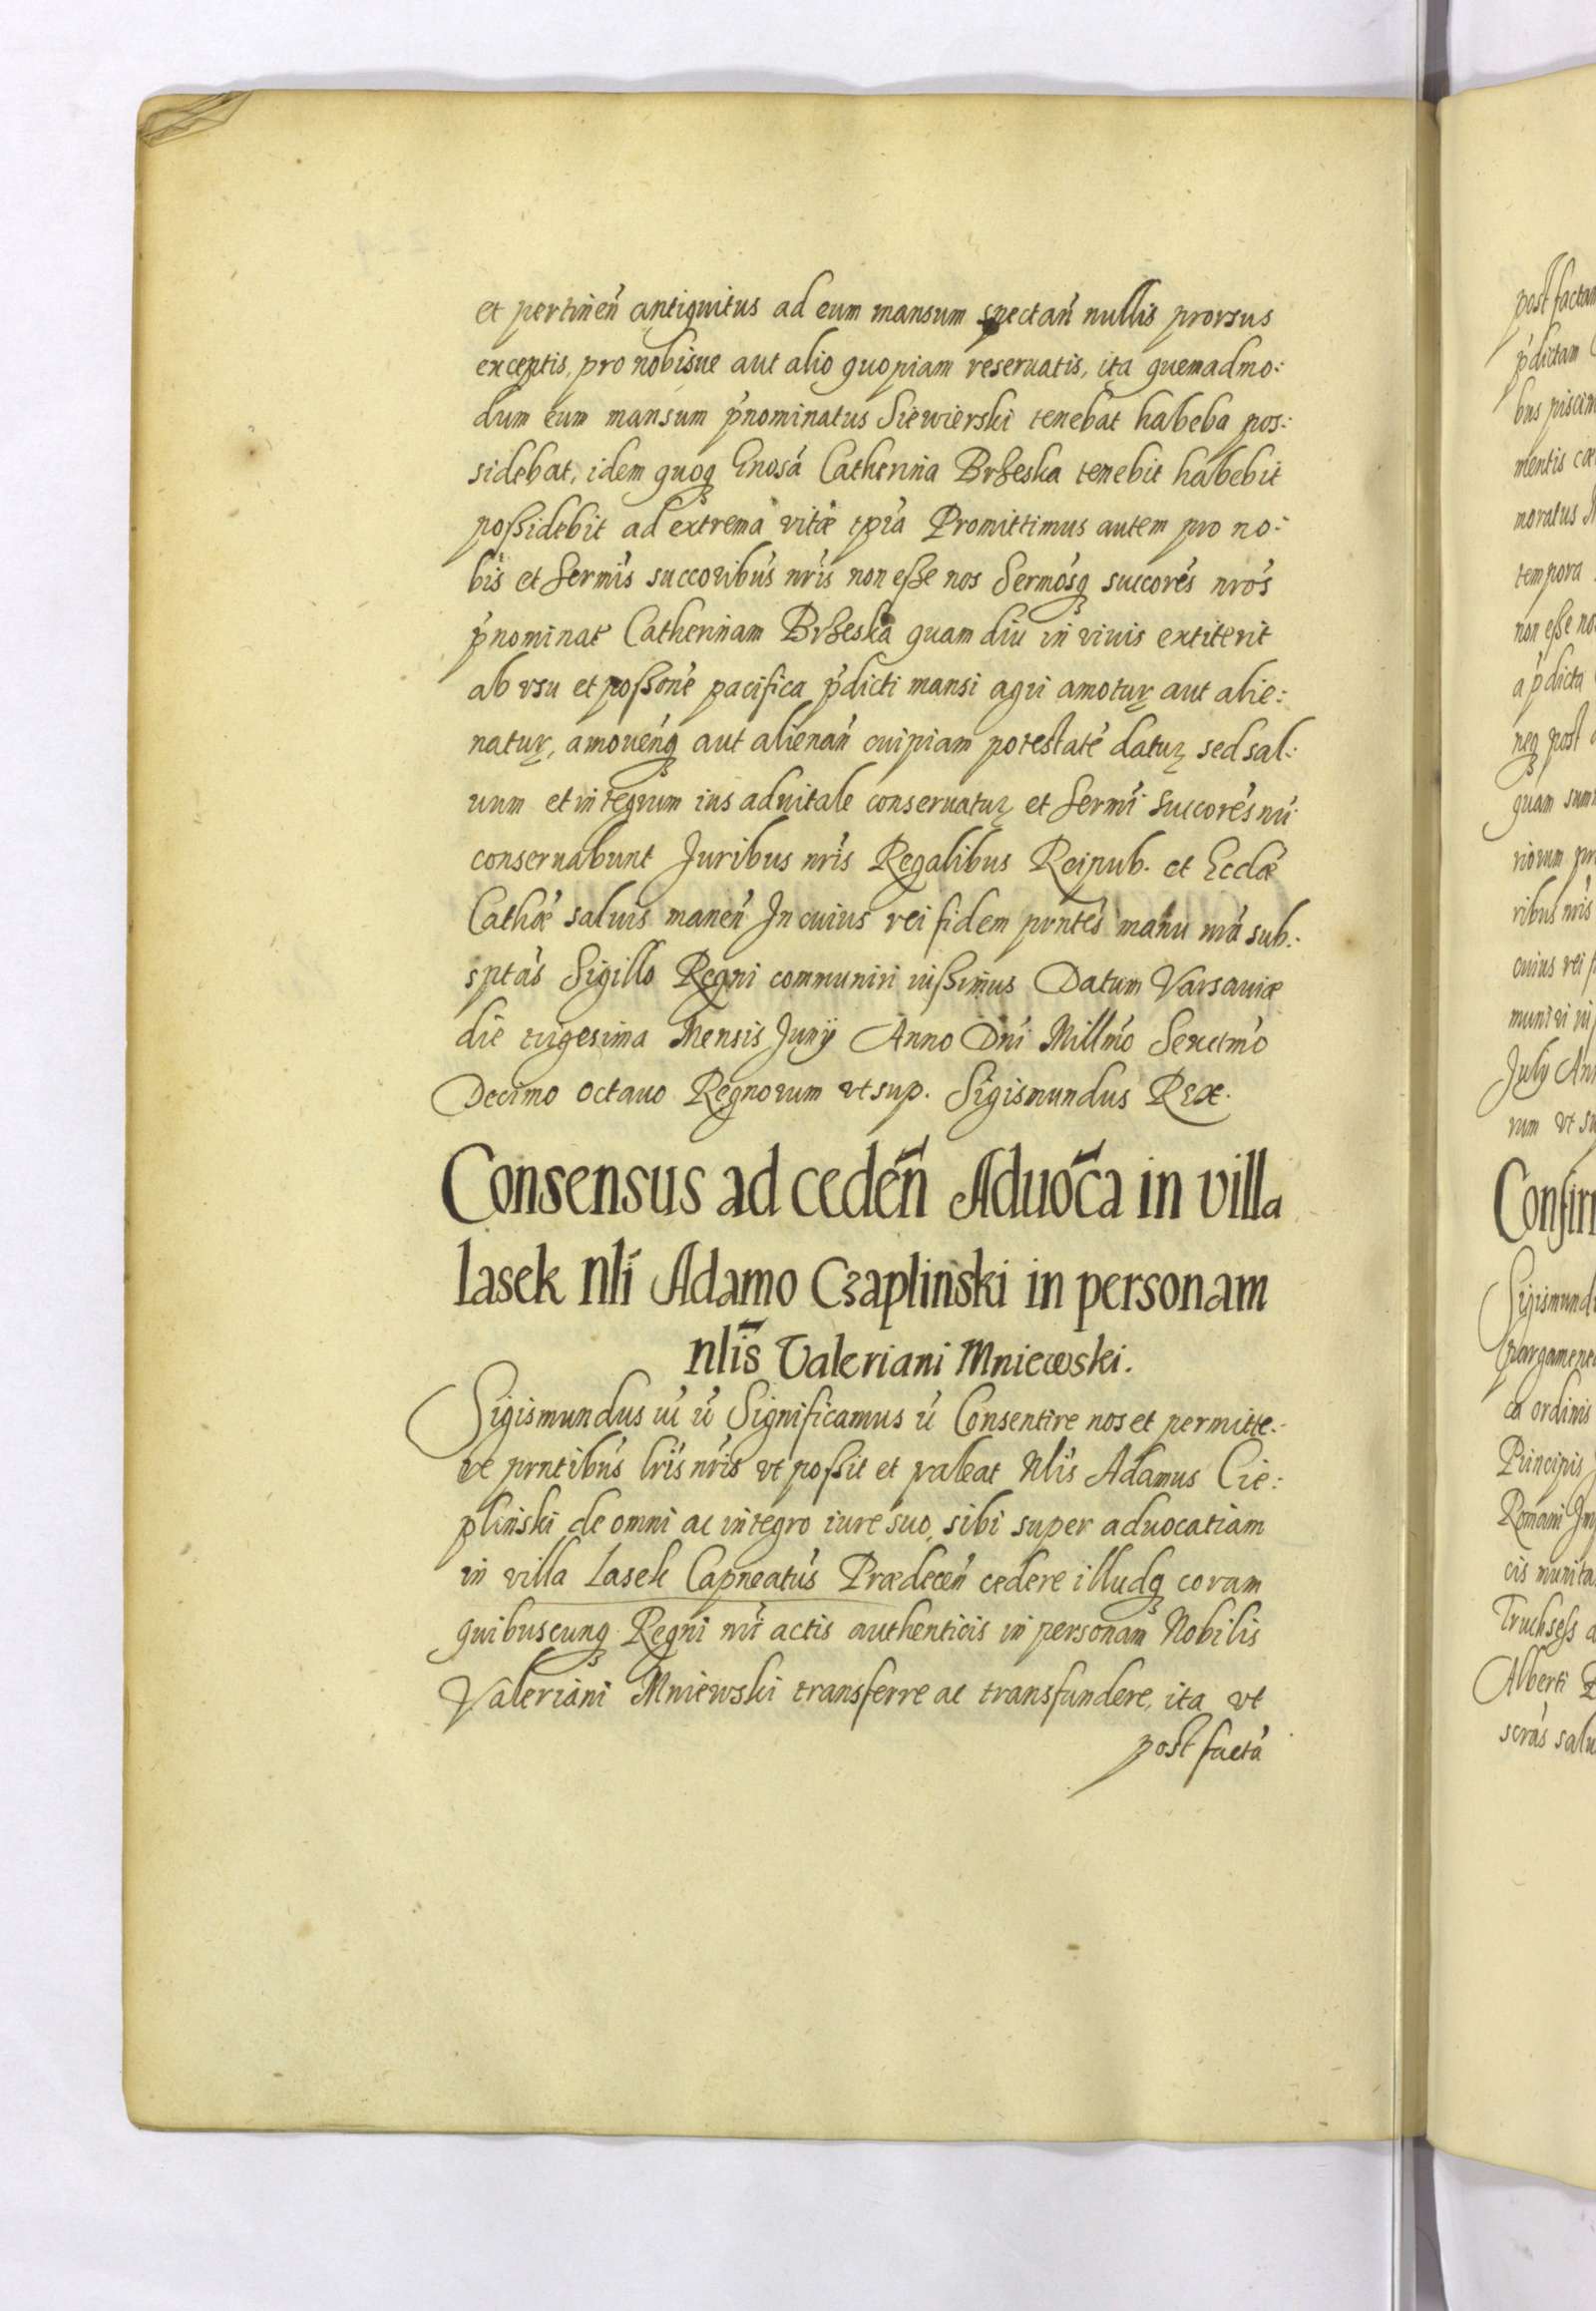 et pertineń antiquitus ad eum mansum spectań nullis prorsus
exceptis, pro nobisue aut alio quopiam reseruatis, ita quemadmo:
dum eum mansum ṕnominatus Siewierski tenebat habeba pos:
sidebat, idem quoq Gnosá Catherina Brzeska tenebit habebit
poßidebit ad extrema vitæ tṕra Promittimus autem pro no:
bis et Sermis succoribus nris non eße nos Sermósq succorés nrós
ṕnominat Catherinam Brzeská quam diu in viuis extiterit
ab vsu et poßoné pacifica ṕdicti mansi agri amotur aut alie:
natur, amouénq aut alienań cuipiam potestaté datur sed sal:
uum et integrum ius aduitale conseruatur et Sermi Succorés nri
conseruabunt Juribus nris Regalibus Reipub. et Ecclæ
Cathæ saluis maneń In cuius rei fidem prntés manu nrá sub:
sptás Sigillo Regni communiri iußimus Datum Varsauiæ
die trigesima Mensis Junij Anno Dni Millmo Sexctmo
Decimo octauo Regnorum vt sup. Sigismundus Rex.
Consensus ad cedeń Aduoca in villa
lasek Nli Adamo Czaplinski in personam
nlis Valeriani Mniewski.
Sigismundus iii ú Significamus ú Consentire nos et permitte:
re prntibus lris nris vt poßit et valeat Nlis Adamus Cie:
plinski de omni ac integro iure suo, sibi super aduocatiam
in villa Lasek Capneatús Prædeceń cedere illudq coram
quibuscunq Regni nri actis authenticis in personam Nobilis
Valeriani Mniewski transferre ac transfundere, ita vt
post factá
post factam
ṕdictam
bus piscin
mentis
moratus
tempora
non eße no
a ṕdicta
neq post
quam sum
riorum
ribus nris
cuius rei
muniri
July An
rum vt su
Confir
Sigismund
pargamene
ca ordinis
Principis
Romani Im
cis munita
Truchseß a
Alberti
scrás salu